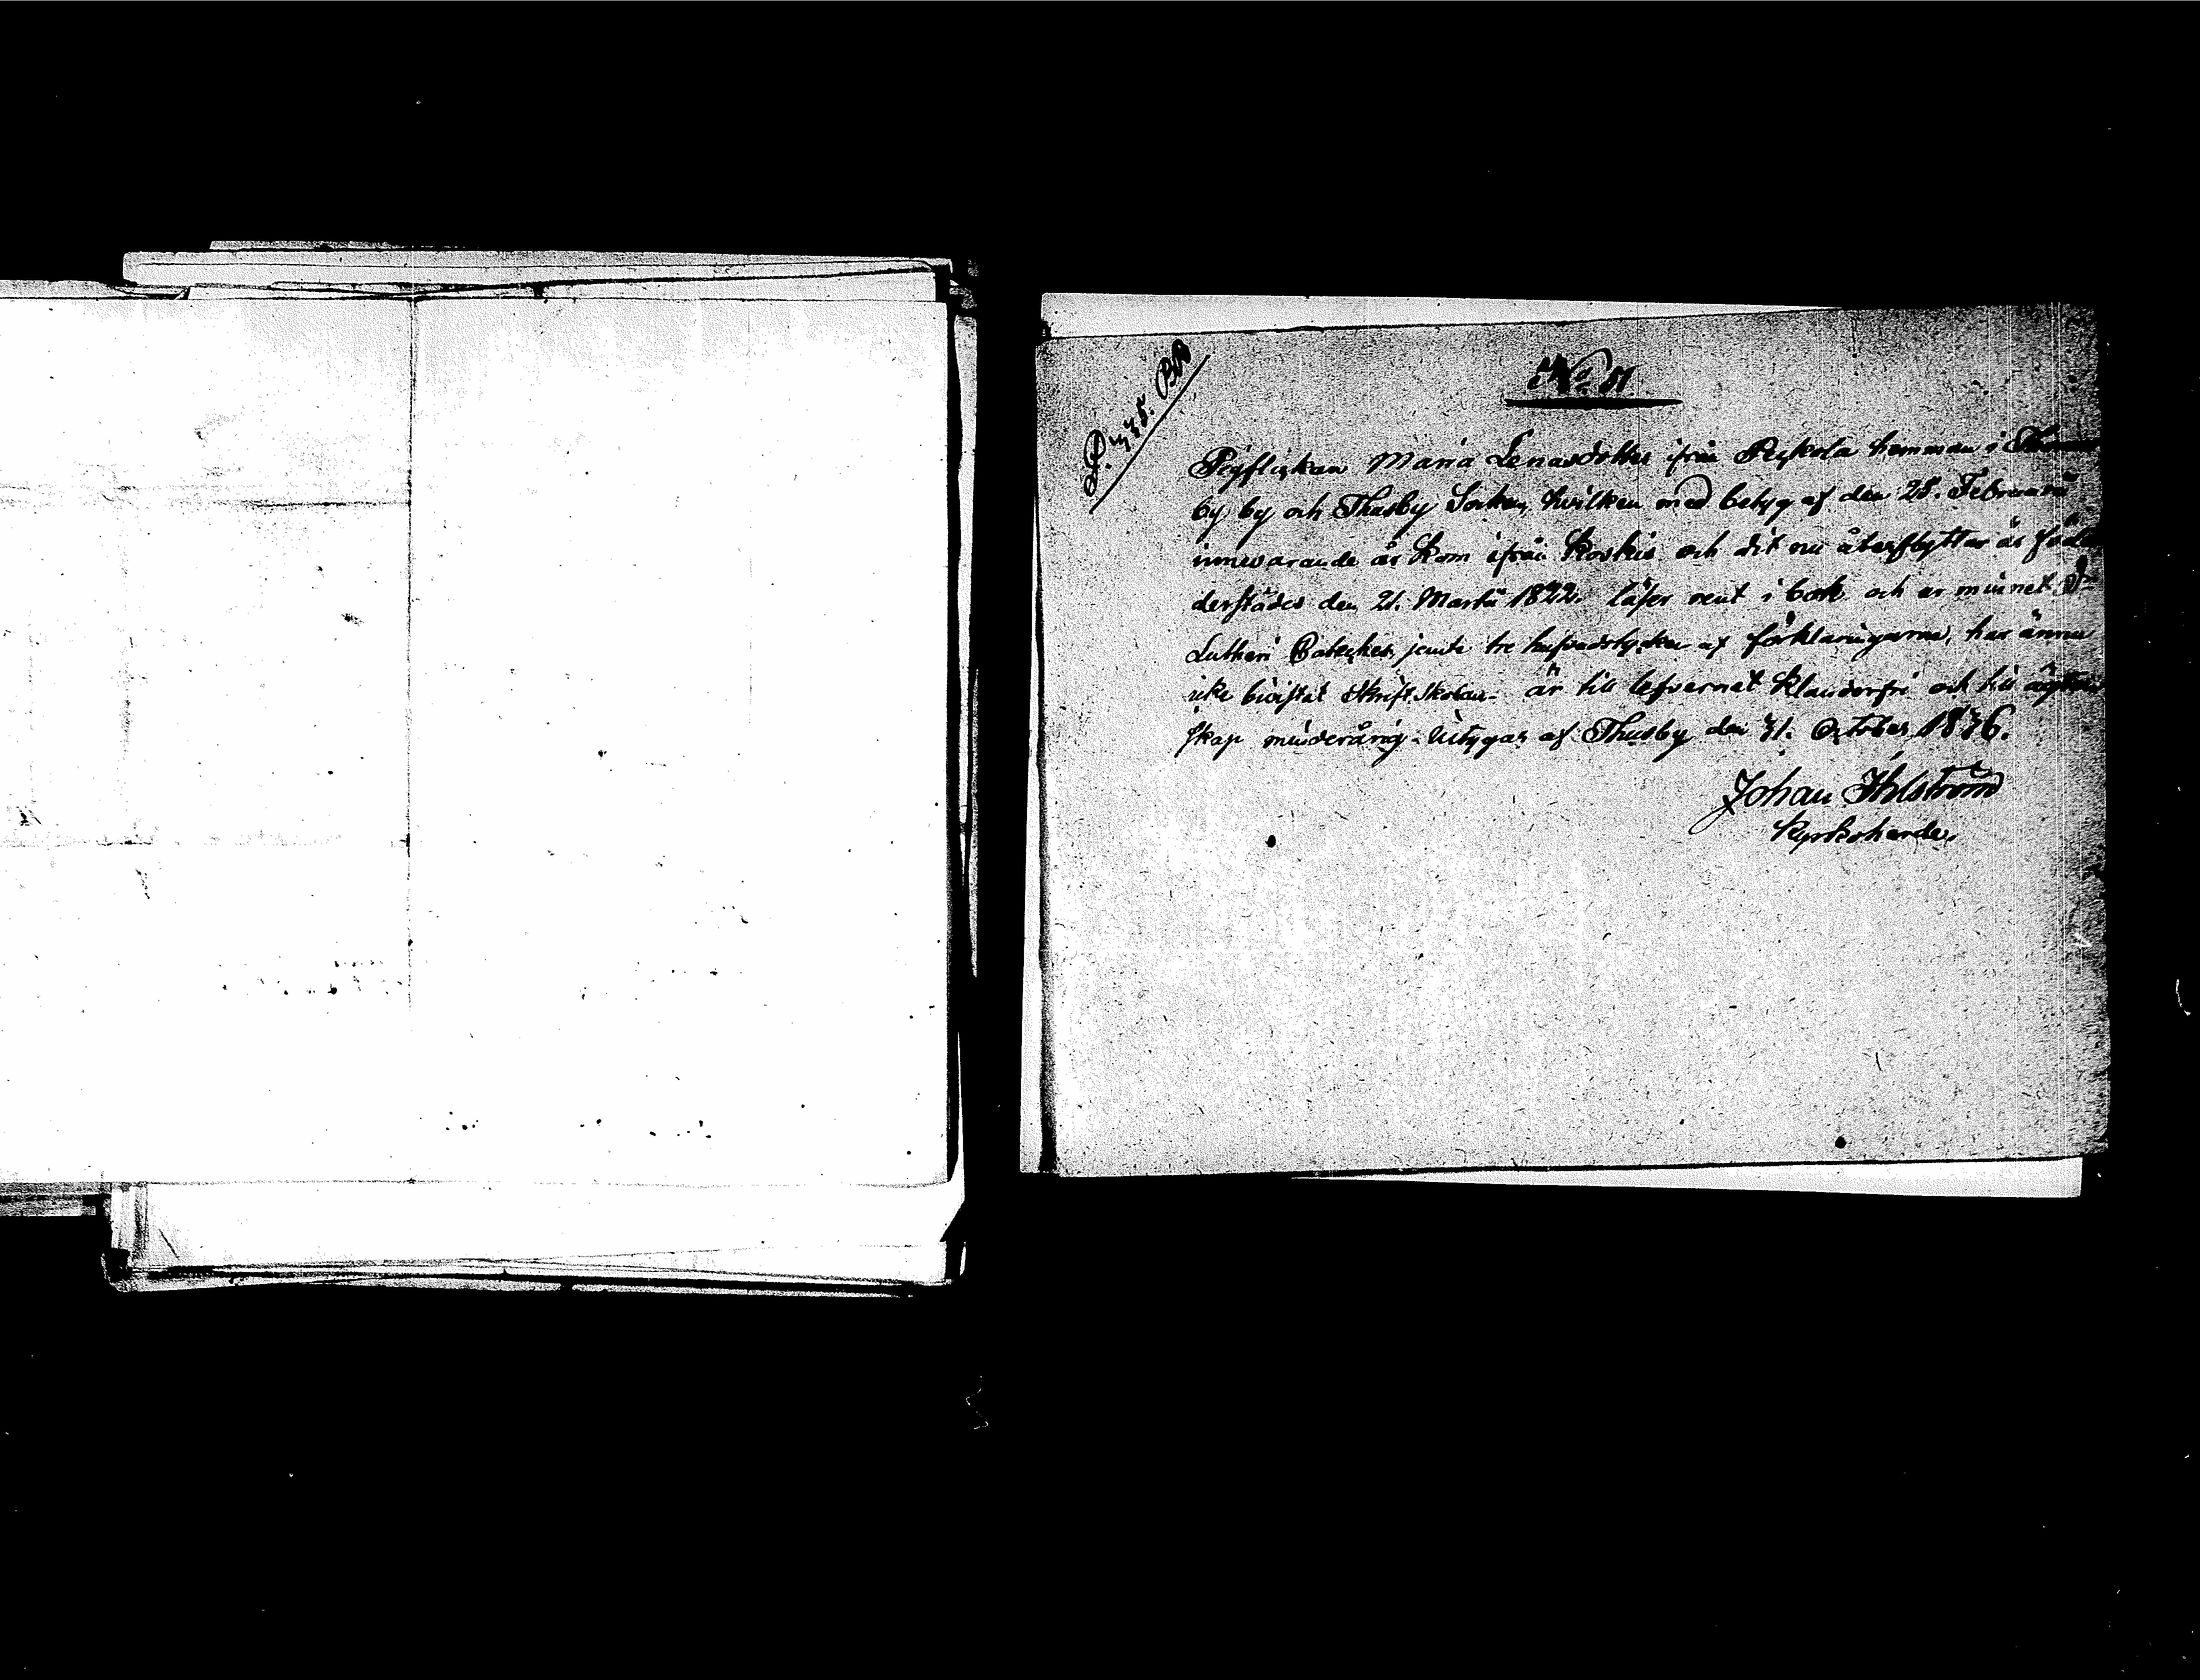 P. 378. BB
No 51
Pigflickan Maria Lenasdotter ifrån Rykola hemman i
by by och Thusby Socken, hvilken med betyg af den 28. Februarii
innevarande år kom ifrån Koskis och dit nu återflyttar är född
derstädes den 21. Martii 1822. läser rent i bok och ur minnet D.
Lutheri Cateches jemte tre hufvudstycken af förklaringarne, har ännu
icke bivistat Skriftskolan. är till lefvernet klanderfri och till ägten
skap minderårig. Betygar af Thusby den 31. October 1836.
Johan Ahlström
Kyrkoherde.